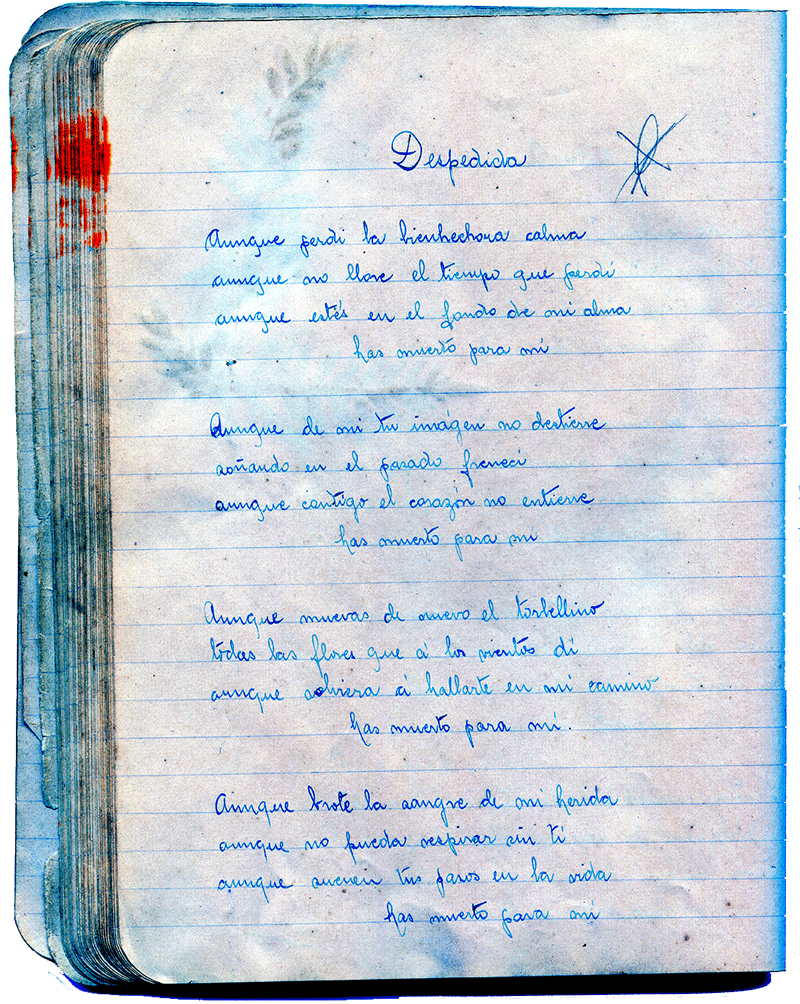 Despedida
Aunque perdi la bienhechora calma
aunque no llore el tiempo que perdí
aunque estés en el fondo de mi alma
has muerto para mí
Aunque de mi tu imágen no destierre
soñando en el pasado freneci
aunque contigo el corazón no entierre
has muerto para mi
Aunque muevas de nuevo el torbellino
todas las flores que á los vientos dí
aunque volviera á hallarte en mi camino
has muerto para mí.
Aunque brote la sangre de mi herida
aunque no pueda respirar sin tí
aunque suenen tus pasos en la vida
has muerto para mí